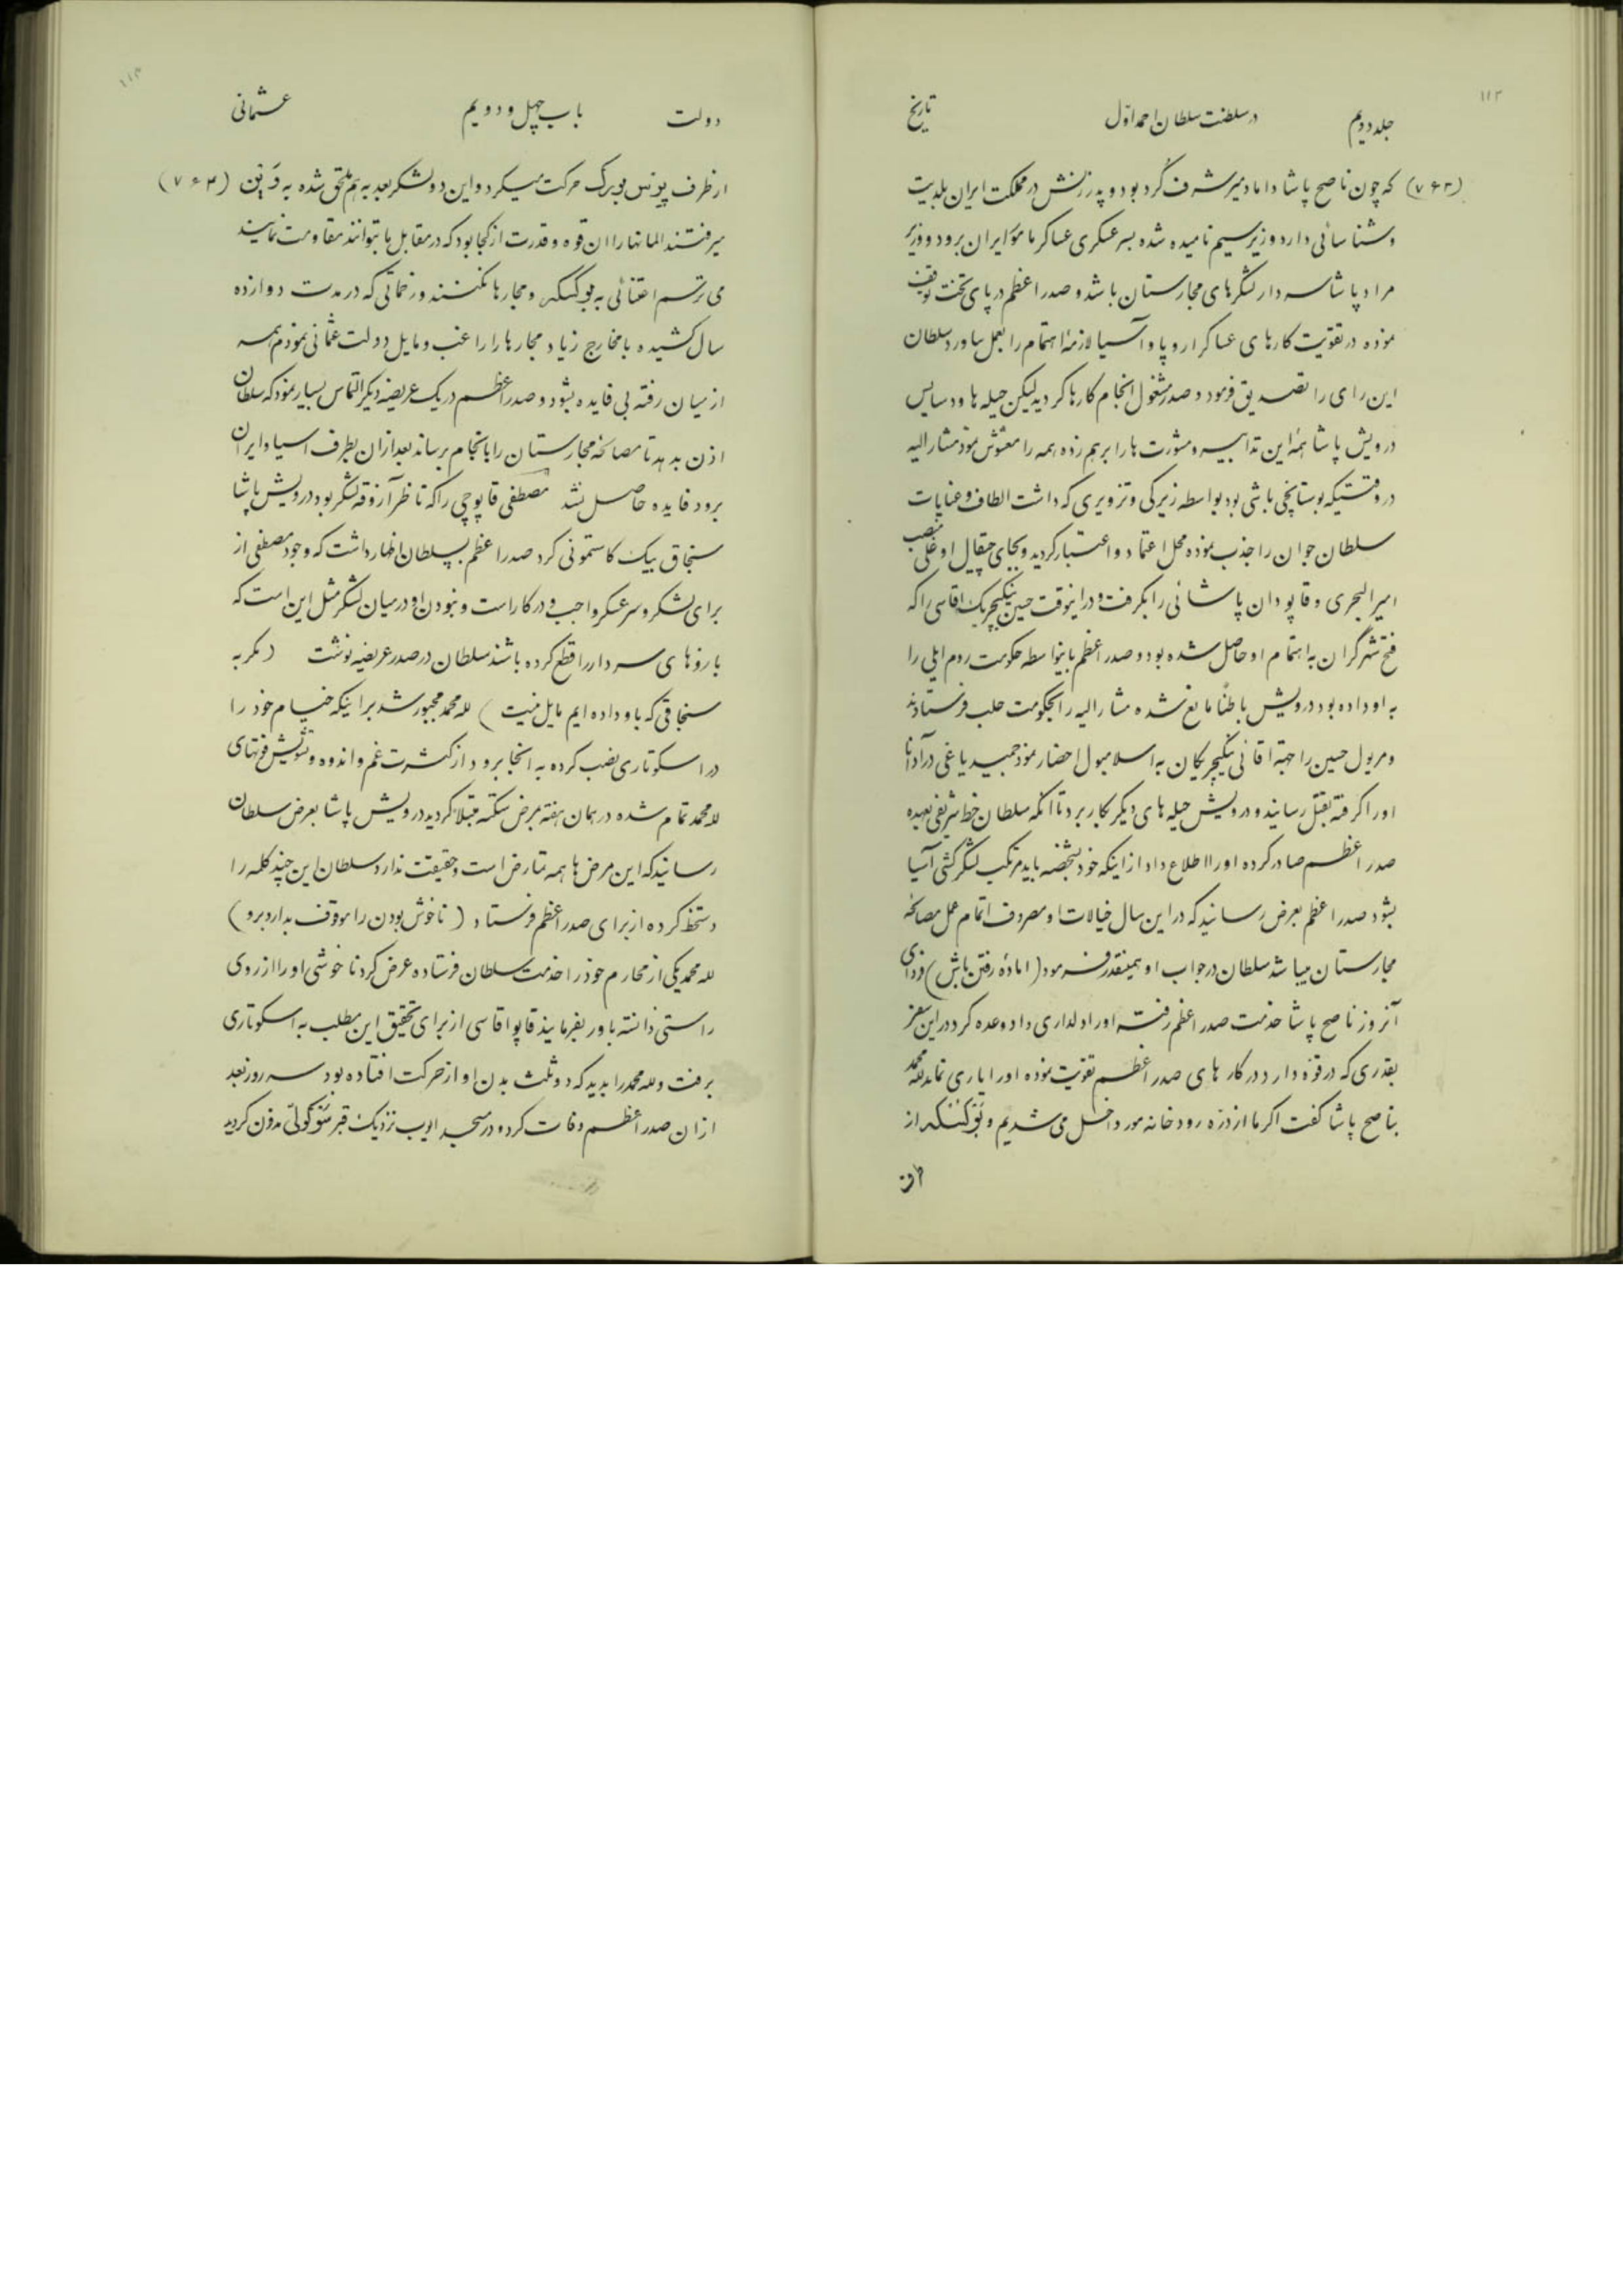 ۱۱۲
جلد دویم در سلطنت سلطان احمد اوّل تاریخ
(۷۶۲) که چون ناصح پاشا داماد میر شرف گرد بود و پدر زنش در مملکت ایران بلدیت
و شناسائی دارد وزیر سیم نامیده شده بسر عسکری عساکر مامور ایران برود و وزیر
مراد پاشا سردار لشگرهای مجارستان باشد و صدر اعظم در پای تخت توقف
نموده در تقویت کارهای عساکر اروپا و آسیا لازمهٔ اهتمام را بعمل بیاورد سلطان
این رای را تصدیق فرمود و صدر مشغول انجام کارها گردید لیکن حیله ها و دسایس
درویش پاشا همهٔ این تدابیر و مشورت ها را برهم زده همه را مغشوش نمود مشار الیه
در وقتیکه بوستانچی باشی بود بواسطه زیرکی و تزویری که داشت الطاف و عنایات
سلطان جوان را جذب نموده محل اعتماد و اعتبار گردید و بجای چقال اوغلی منصب
امیر البحری و قاپودان پاشائی را بگرفت و در اینوقت حسین ینگیچریک اقاسی را که
فتح شهر گران به اهتمام او حاصل شده بود و صدر اعظم باینواسطه حکومت روم ایلی را
به او داده بود درویش باطناً مانع شده مشار الیه را بحکومت حلب فرستادند
و مریول حسین را جهة اقائی ینگیچریکان به اسلامبول احضار نمود جمبید یاغی در آدانا
او را گرفته بقتل رسانید و درویش حیله های دیگر بکار برد تا آنکه سلطان خط شریفی بعهده
صدر اعظم صادر کرده او را اطلاع داد از اینکه خود بشخصه باید مرتکب لشگر کشی آسیا
بشود صدر اعظم بعرض رسانید که در این سال خیالات او مصروف اتمام عمل مصالحهٔ
مجارستان میباشد سلطان در جواب او همینقدر فرمود (امادهٔ رفتن باش) فردای
آنروز ناصح پاشا خدمت صدر اعظم رفته او را دلداری داد و وعده کرد در این سفر
بقدری که در قوّه دارد در کارهای صدر اعظم تقویت نموده او را یاری نماید لله محمد
بناصح پاشا گفت اگر ما از درّه رودخانه مور داخل می شدیم و بوگسکی از
طرف
۱۱۳
دولت باب چهل و دویم عثمانی
از طرف پونس بورک حرکت میکرد و این دو لشگر بعد به هم ملحق شده به وین (۷۶۳)
میرفتند المانها را ان قوه و قدرت از کجا بود که در مقابل ما بتوانند مقاومت نمایند
می ترسم اعتنائی به بوگسکی و مجارها نکنند و زحماتی که در مدت دوازده
سال کشیده با مخارج زیاد مجارها را راغب و مایل دولت عثمانی نمودم همه
از میان رفته بی فایده بشود و صدر اعظم در یک عریضه دیگر التماس بسیار نمود که سلطان
اذن بدهد تا مصالحه مجارستان را بانجام برساند بعد از ان بطرف اسیا و ایران
برود فایده حاصل نشد مصطفی قاپوچی را که ناظر آزوقه لشگر بود درویش پاشا
سنجاق بیک کاستمونی کرد صدر اعظم بسلطان اظهار داشت که وجود مصطفی از
برای لشگر و سر عسکر واجب و در کار است و نبودن او در میان لشگر مثل این است که
بازوهای سردار را قطع کرده باشند سلطان در صدر عریضه نوشت (مگر به
سنجاقی که باو داده ایم مایل نیست) لله محمد مجبور شد بر اینکه خیام خود را
در اسکوتاری نصب کرده به انجا برود از کثرت غم و اندوه و تشویش قوتهای
لله محمد تمام شده در همان هفته بمرض سکته مبتلا گردید درویش پاشا بعرض سلطان
رسانید که این مرض ها همه تمارض است و حقیقت ندارد سلطان این چند کلمه را
دستخط کرده از برای صدر اعظم فرستاد (ناخوش بودن را موقوف بدار و برو)
لله محمد یکی از محارم خود را خدمت سلطان فرستاده عرض کرد ناخوشی او را از روی
راستی دانسته باور بفرمایند قاپو اقاسی از برای تحقیق این مطلب به اسکوتاری
برفت و لله محمد را بدید که دو ثلث بدن او از حرکت افتاده بود سه روز بعد
از ان صدر اعظم وفات کرد و در مسجد ایوب نزدیک قبر سوکوللی مدفون گردید